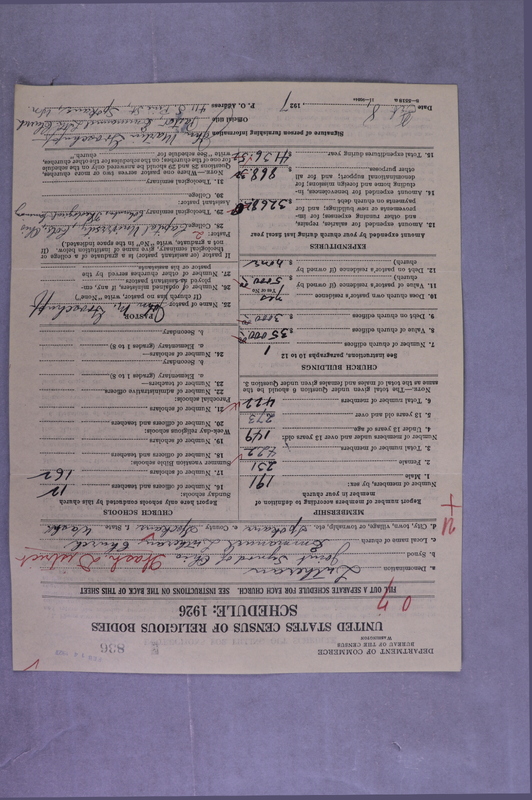 DEPARTMENT OF COMMERCE
BUREAU OF THE CENSUS
WASHINGTON
836
UNITED STATES CENSUS OF RELIGIOUS BODIES
SCHEDULE: 1926
FILL OUT A SEPARATE SCHEDULE FOR EACH CHURCH. SEE INSTRUCTIONS ON THE BACK OF THIS SHEET
a. Denomination Lutheran
b. Synod Joint Synod of Ohio Wash District
c. Local name of church Emmanuel Lutheran Church
d. City, town, village, or township, etc. Spokane e. County Spokane f. State Wash.
MEMBERSHIP
Report here membership according to definition of member in your church
Number of members, by sex:
1. Male 191
2. Female 231
3. Total number of members 422
Number of members under and over 13 years old:
4. Under 13 years of age 149
5. 13 years old and over 273
6. Total number of members 422
NOTE.—The total given under Question 6 should be the same as the total of males and females given under Question 3.
CHURCH BUILDINGS
See instructions, paragraphs 10 to 12
7. Number of church edifices 1
8. Value of church edifices $ 35000
9. Debt on church edifices $ 3000
10. Does church own pastor's residence yes
11. Value of pastor's residence (if owned by church) $ 5000
12. Debt on pastor's residence (if owned by church) $ none
EXPENDITURES
Amount expended by your church during last fiscal year
13. Amount expended for salaries, repairs, and other running expenses; for improvements or new building; and for payments on church debt
14. Amount expended for benevolences, including home and foreign missions; for denominational support; and for all other purposes $ 868.52
15. Total expenditures during year
CHURCH SCHOOLS
Report here only schools conducted by this church
Sunday schools:
16. Number of officers and teachers 12
17. Number of scholars 162
Summer vacation Bible schools:
18. Number of officers and teachers
19. Number of scholars
Week-day religious schools:
20. Number of officers and teachers
21. Number of scholars
Parochial schools:
22. Number of administrative officers
23. Number of teachers—
a. Elementary (grades 1 to 8)
b. Secondary
24. Number of scholars—
a. Elementary (grades 1 to 8)
b. Secondary
PASTOR
25. Name of pastor
(If church has no pastor, write "None")
26. Number of ordained ministers, if any, employed as assistant pastors
27. Number of other churches served by the pastor or of his assistants
If pastor (or assistant pastor) is a graduate of a college or theological seminary, give name of institution below. (If not a graduate, write "No" in the space indicated.)
Pastor:
28. College Capital University, Cols, Ohio
29. Theological seminary
Assistant pastor:
30. College
31. Theological seminary
Signature of person furnishing information
Official title
P. O. Address
Date Feb 8, 1927